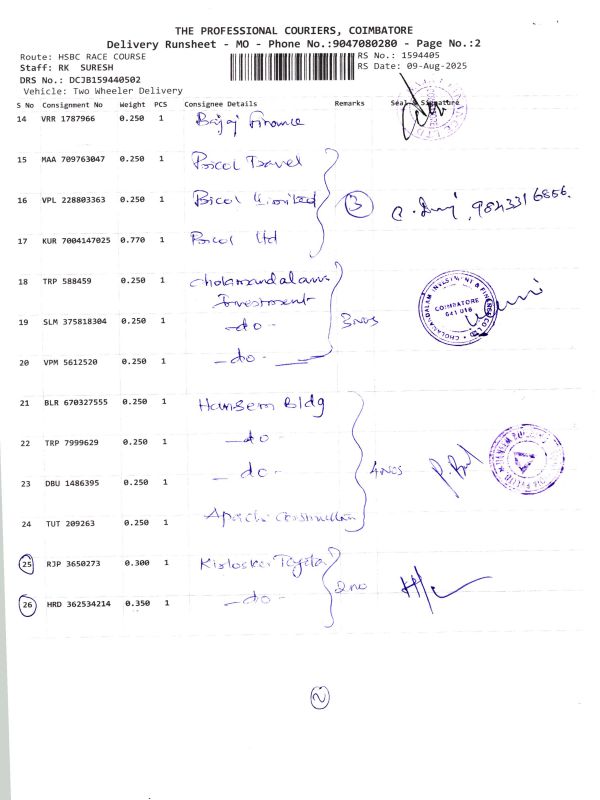 THE PROFESSIONAL COURIERS, COIMBATORE
Delivery Runsheet - MO - Phone No.:9047080280 - Page No.:2
Route: HSBC RACE COURSE
RS No.: 1594405
Staff: RK SURESH
RS Date: 09-Aug-2025
DRS No.: DCJB159440502
Vehicle: Two Wheeler Delivery
S No Consignment No Weight PCS Consignee Details Remarks Seal & Signature
14 VRR 1787966 0.250 1 Bajaj Finance
15 MAA 709763047 0.250 1 Pricol Travel
16 VPL 228803363 0.250 1 Pricol Limited 3 9843316856
17 KUR 7004147025 0.770 1 Pricol Ltd
18 TRP 588459 0.250 1 Cholamandalam
Investment
19 SLM 375818304 0.250 1 -do- 3nos
20 VPM 5612520 0.250 1 -do-
CHOLAMANDALAM INVESTMENT & FINANCE CO LTD
COIMBATORE
641 018
21 BLR 670327555 0.250 1 Hansem Bldg
22 TRP 7999629 0.250 1 -do-
23 DBU 1486395 0.250 1 -do- 4nos
24 TUT 209263 0.250 1 Apachi Construction
25 RJP 3650273 0.300 1 Kirloskar Toyota
26 HRD 362534214 0.350 1 -do- 2no
2